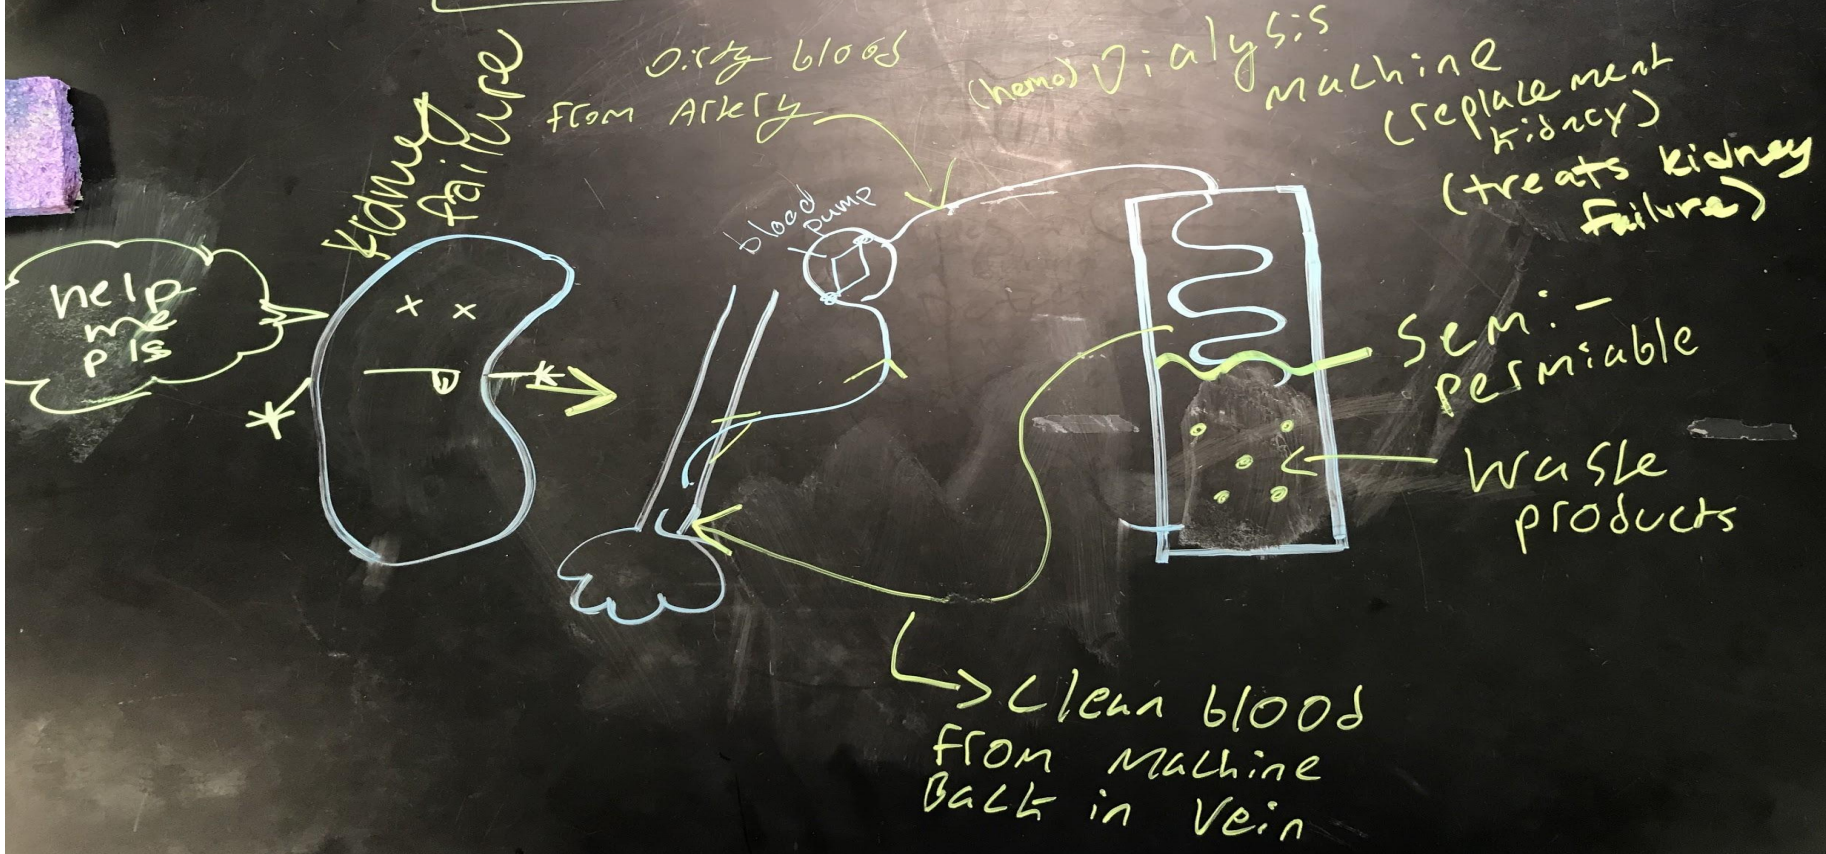 help
me
pls
Kidney
failure
Dirty blood
from Artery
blood
pump
(hemo) Dialysis
Machine
(replacement
kidney)
(treats kidney
failure)
Semi-
permiable
Waste
products
Clean blood
from Machine
Back in Vein